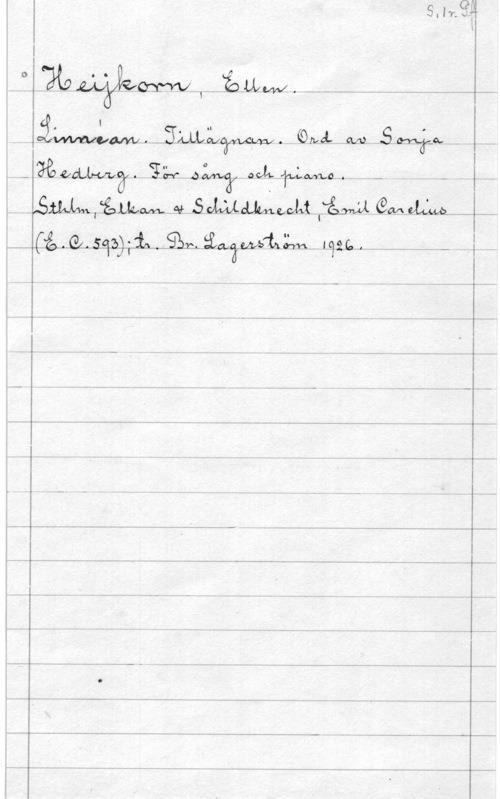 S, 1 r. Pf
Heijkorn, Ellen.
Linnéan. Tillägnan. Ord av Sonja
Hedberg. För sång och piano.
Sthlm, Elkan & Schildknecht, Emil Carelius
(E.C.593); tr. Br. Lagerström 1926.